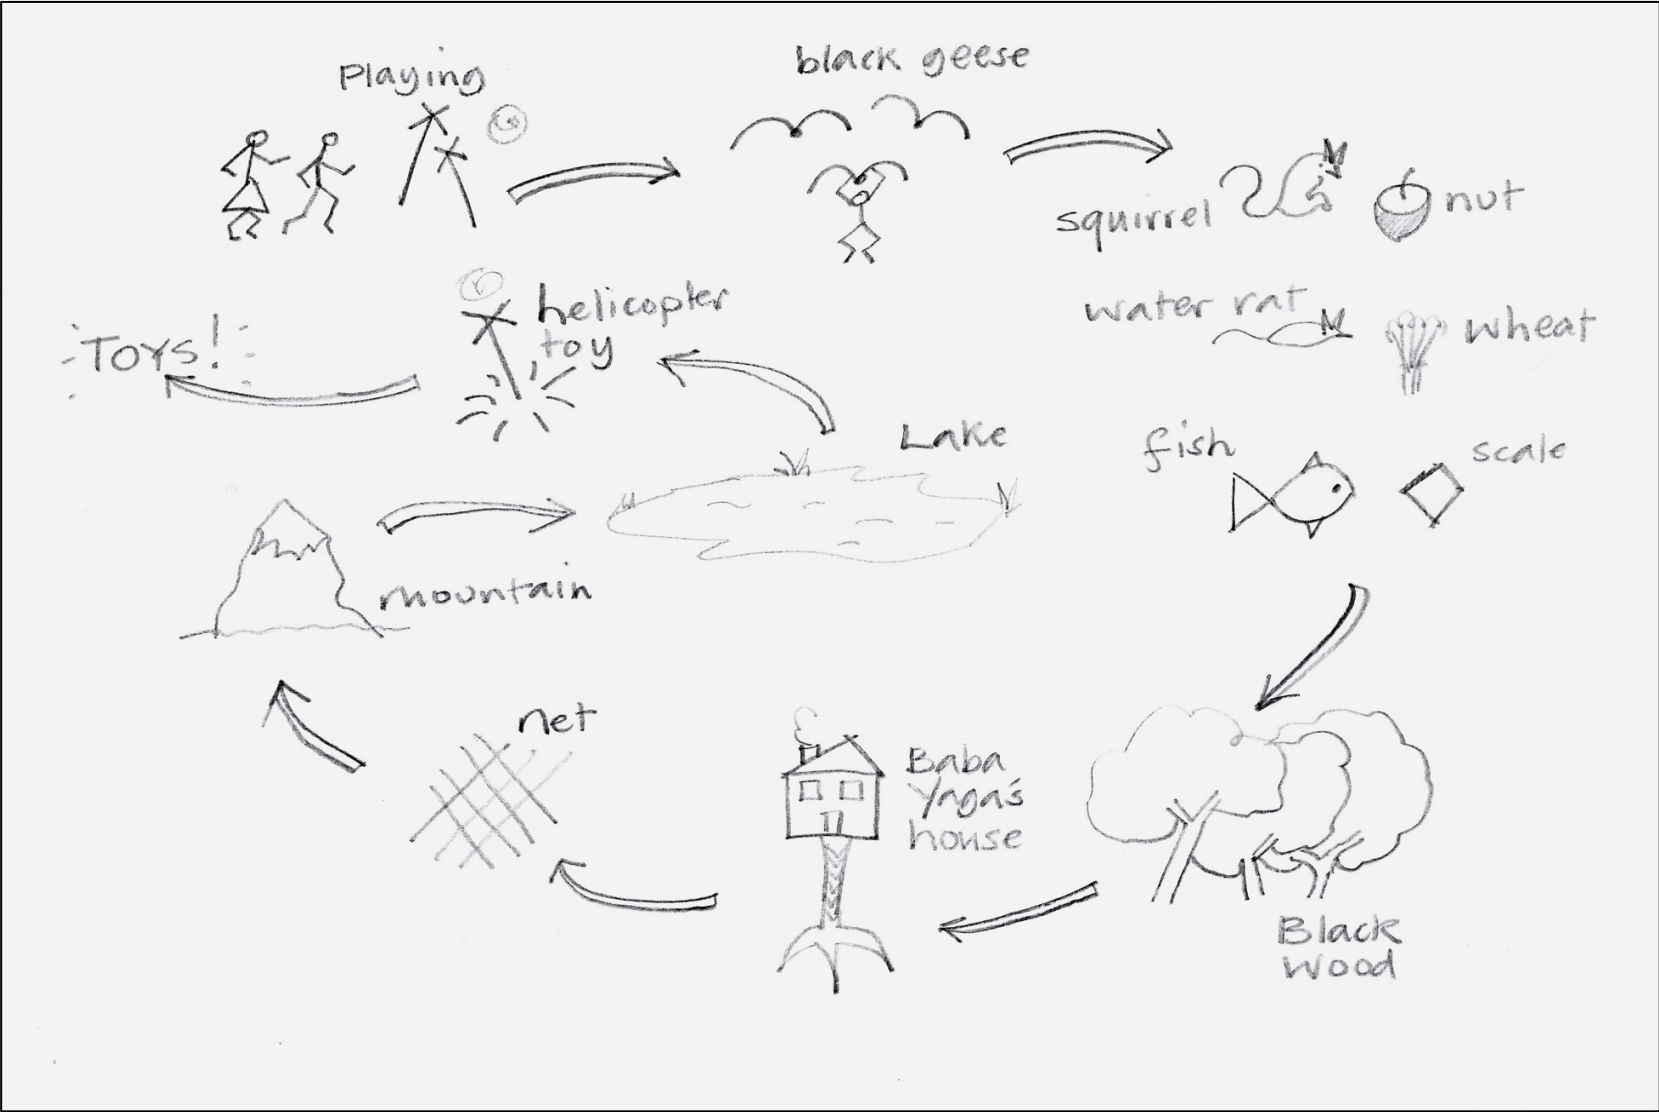 Playing
black geese
squirrel
nut
water rat
wheat
fish
scale
Black
Wood
Baba
Yaga's
house
net
mountain
Lake
helicopter
toy
Toys!